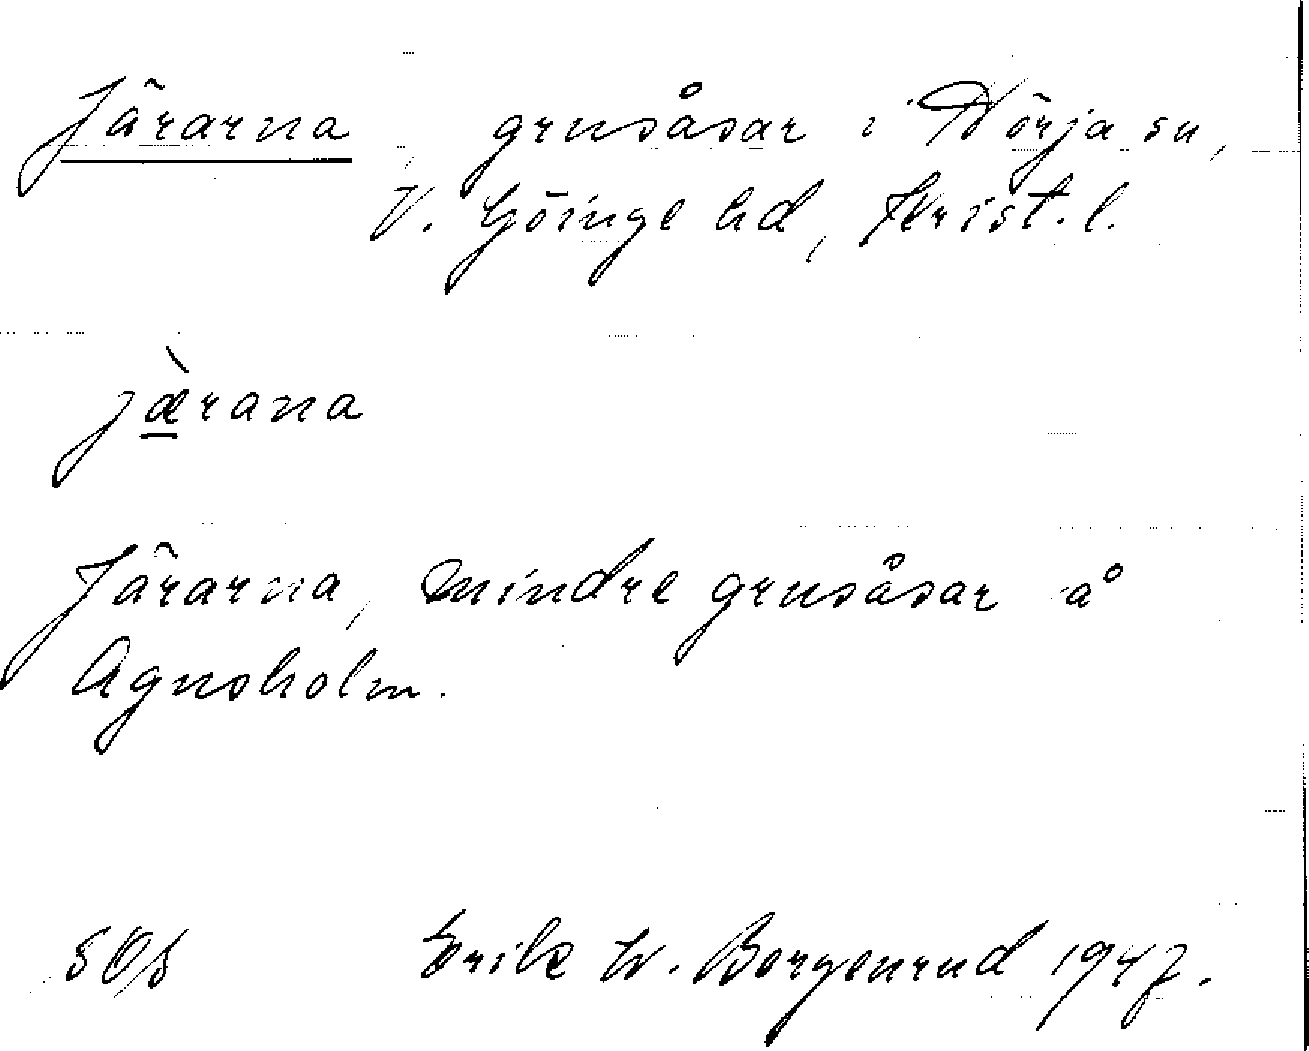 Järarna, grusåsar i Nörja sn,
V. Göinge hd, Krist. l.
jæ̀rana
Järarna, mindre grusåsar å
Agnsholm.
Erik W. Borgenrud 1947.